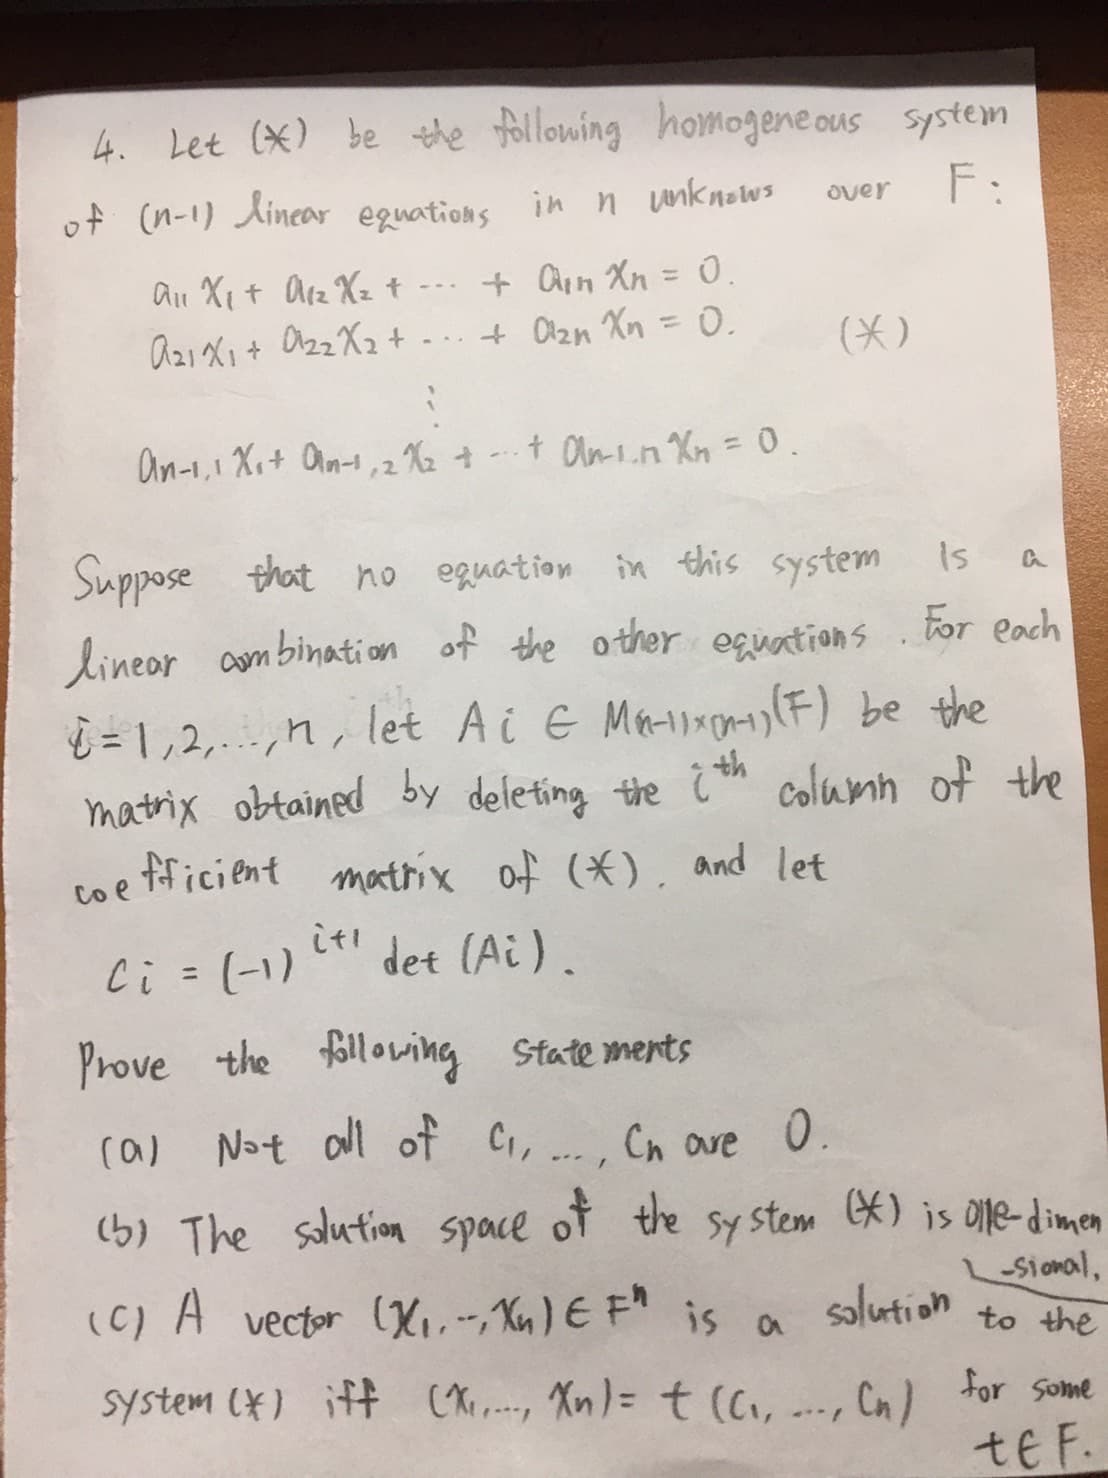 4. Let (*) be the following homogeneous system
of (n-1) linear equations in n unknows over F:
a₁₁ X₁ + a₁₂ X₂ + ... + a₁ₙ Xₙ = 0.
a₂₁ X₁ + a₂₂ X₂ + ... + a₂ₙ Xₙ = 0. (*)
⋮
aₙ₋₁,₁ X₁ + aₙ₋₁,₂ X₂ + ... + aₙ₋₁.ₙ Xₙ = 0.
Suppose that no equation in this system Is a
linear combination of the other equations. For each
i = 1, 2, ..., n, let Ai ∈ M₍ₙ₋₁₎ₓ₍ₙ₋₁₎(F) be the
matrix obtained by deleting the iᵗʰ column of the
coefficient matrix of (*). and let
Ci = (-1)ⁱ⁺¹ det (Ai).
Prove the following statements
(a) Not all of C₁, ..., Cₙ are 0.
(b) The solution space of the system (*) is one-dimen
-sional.
(C) A vector (X₁, .., Xₙ) ∈ Fⁿ is a solution to the
system (*) iff (X₁, ..., Xₙ) = t (C₁, ..., Cₙ) for some
t ∈ F.